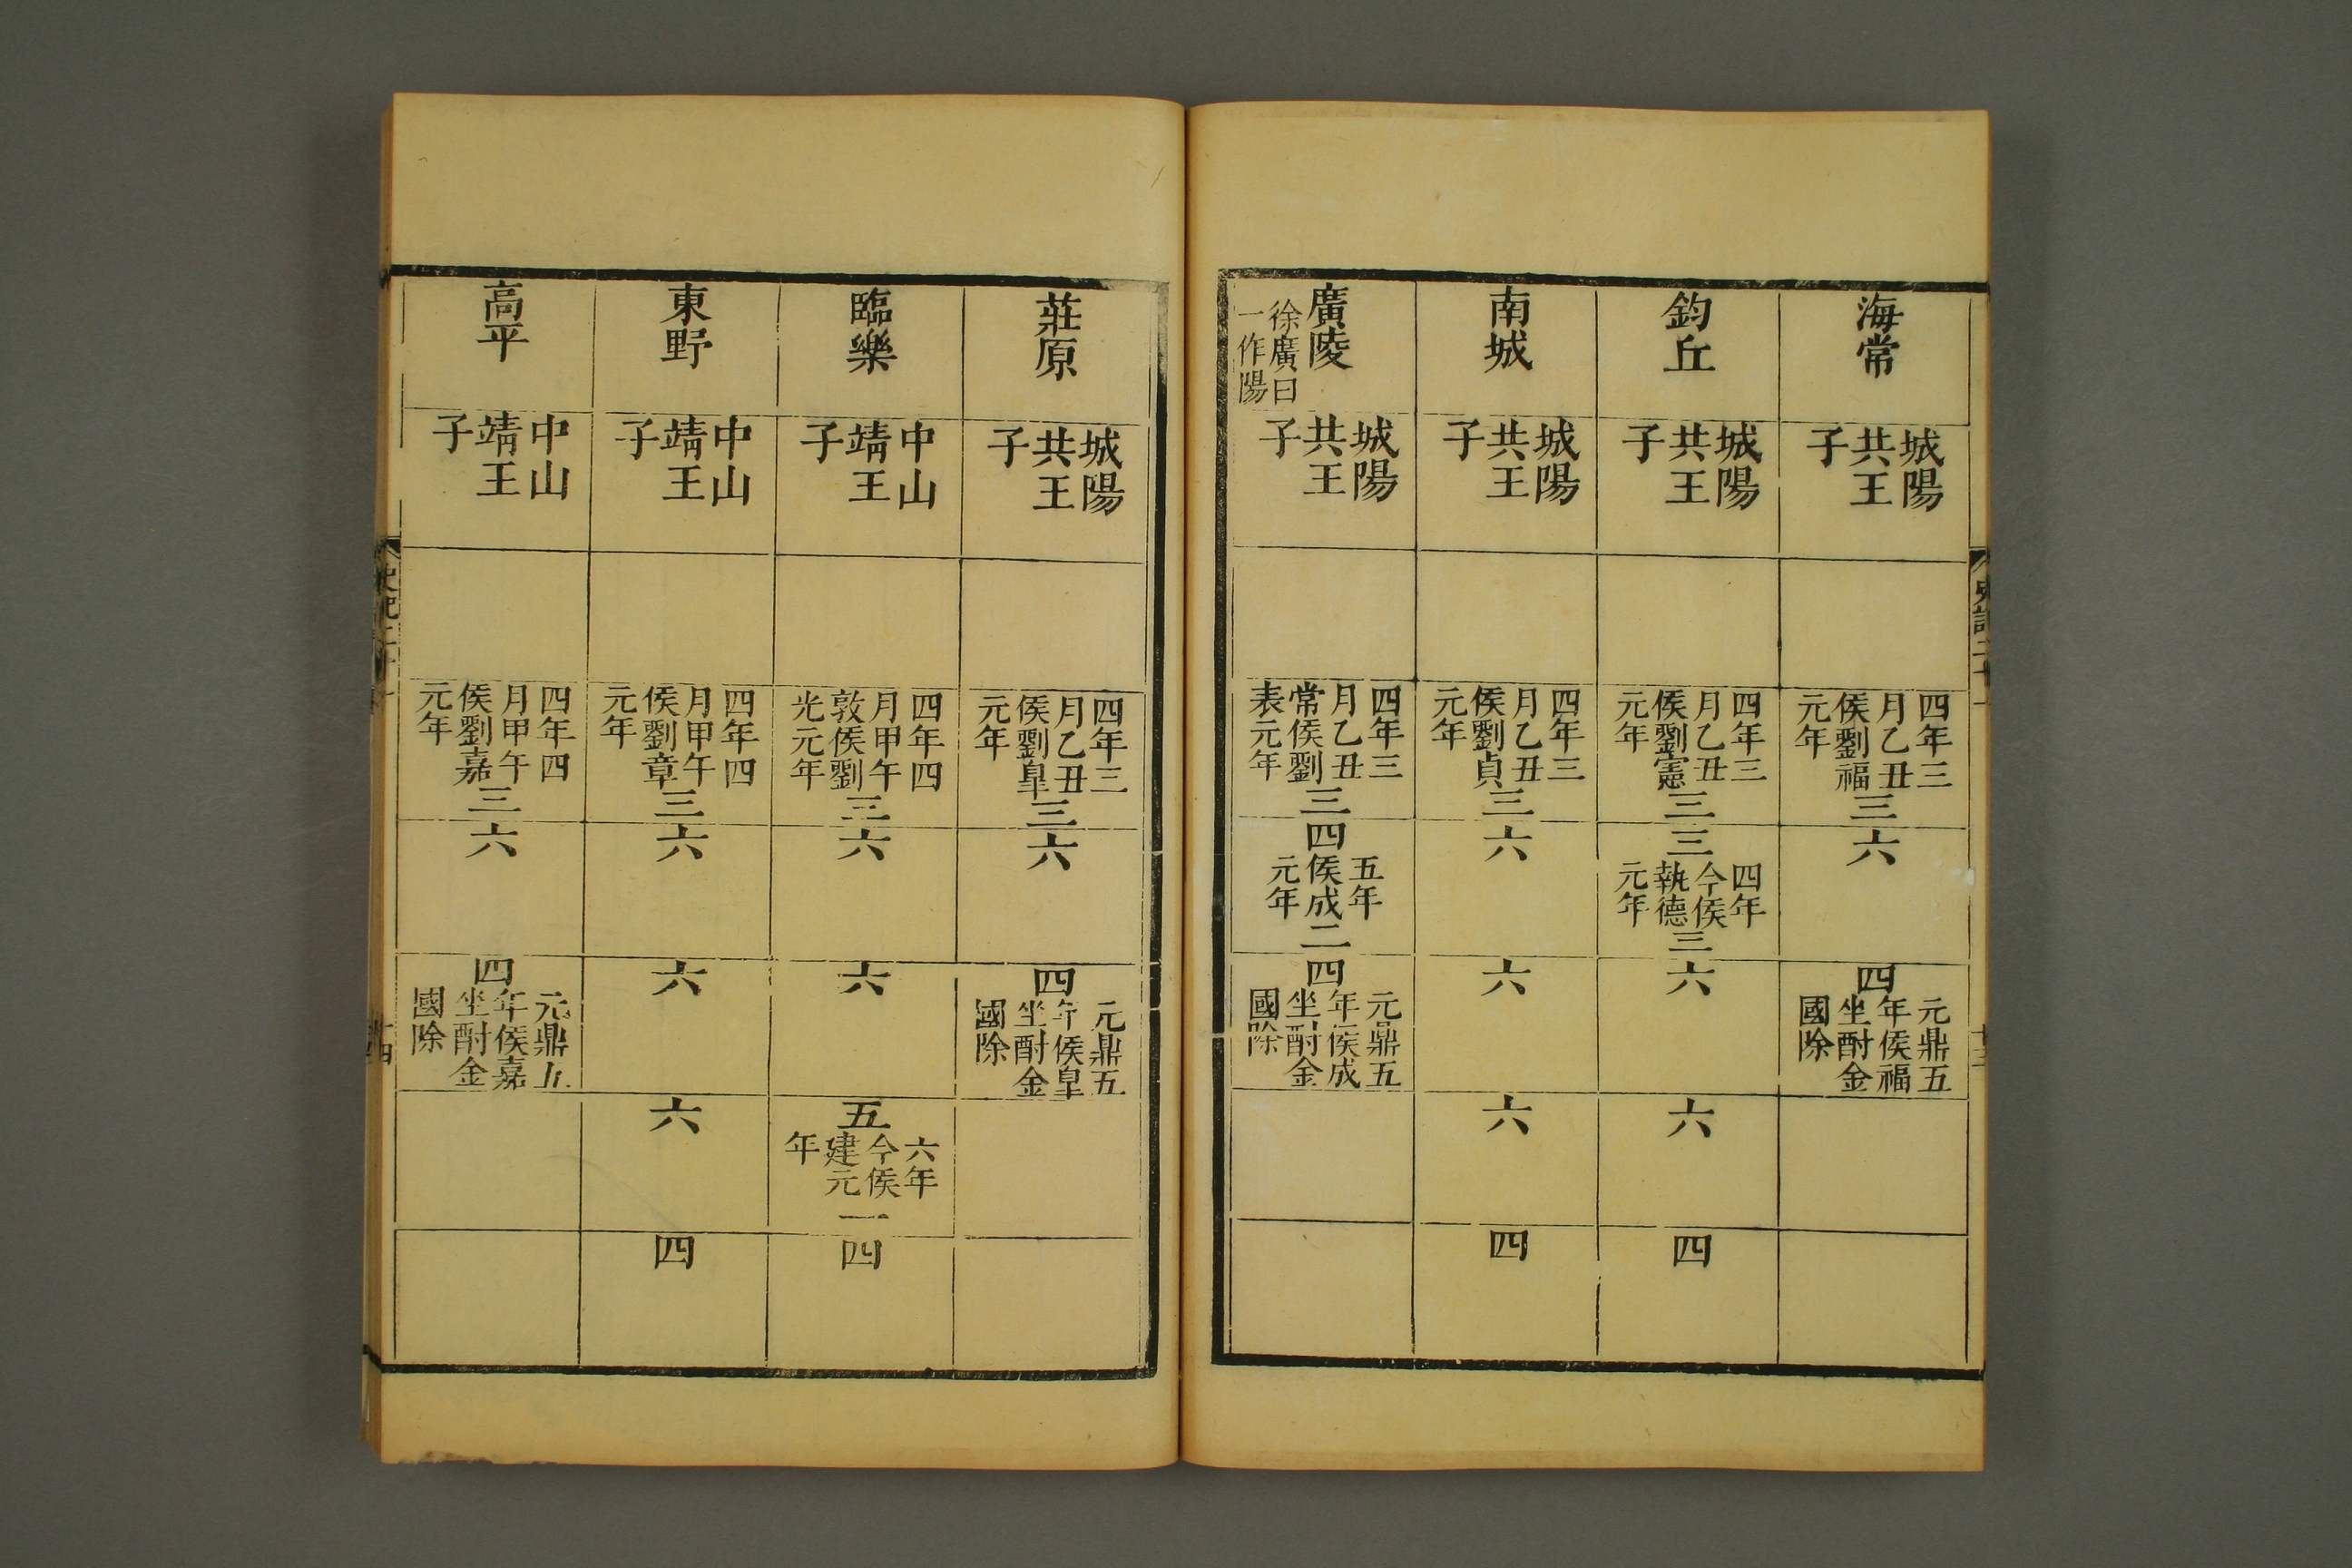 海常
城陽
共王
子
四年三
月乙丑
侯劉福
元年
三
六
四
元鼎五
年侯福
坐酎金
國除
鈞丘
城陽
共王
子
四年三
月乙丑
侯劉憲
元年
三
三
四年
今侯
執德
元年
三
六
六
四
南城
城陽
共王
子
四年三
月乙丑
侯劉貞
元年
三
六
六
六
四
廣陵
徐廣曰
一作陽
城陽
共王
子
四年三
月乙丑
常侯劉
表元年
三
四
五年
侯成
元年
二
四
元鼎五
年侯成
坐酎金
國除
莊原
城陽
共王
子
四年三
月乙丑
侯劉皐
元年
三
六
四
元鼎五
年侯皐
坐酎金
國除
臨樂
中山
靖王
子
四年四
月甲午
敦侯劉
光元年
三
六
六
五
六年
今侯
建元
年
一
四
東野
中山
靖王
子
四年四
月甲午
侯劉章
元年
三
六
六
六
四
高平
中山
靖王
子
四年四
月甲午
侯劉嘉
元年
三
六
四
元鼎五
年侯嘉
坐酎金
國除